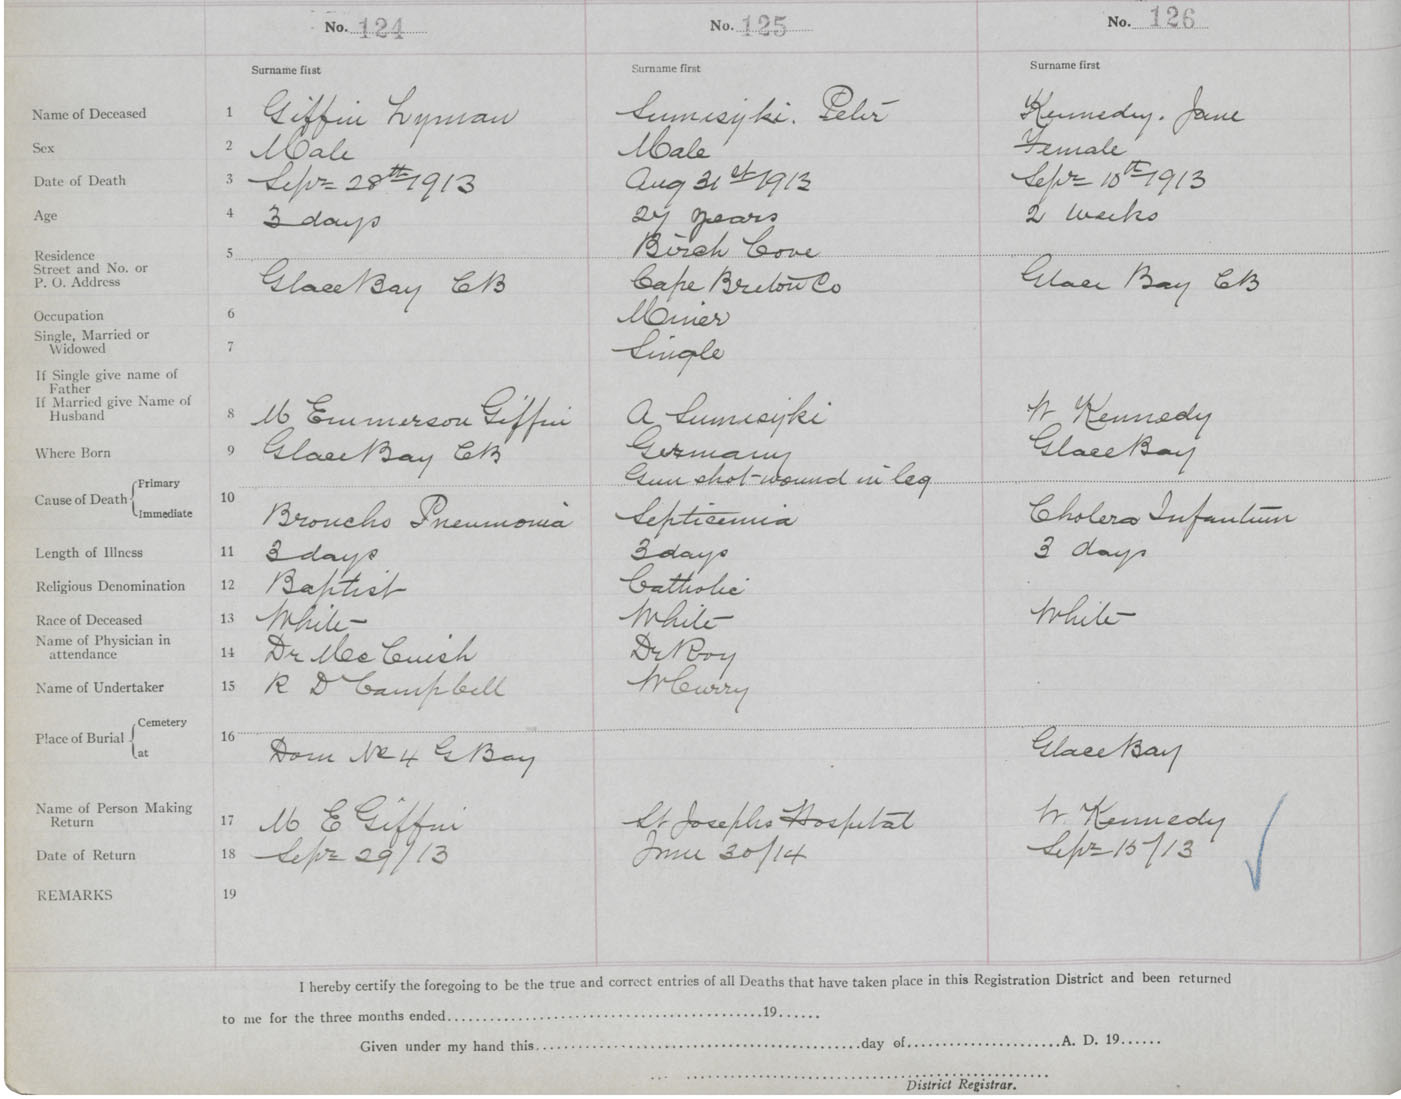 No. 124 No. 125 No. 126
Surname first Surname first Surname first
Name of Deceased 1 Giffin Lyman Sumisyki. Peter Kennedy. Jane
Sex 2 Male Male Female
Date of Death 3 Sept 28th 1913 Aug 31st 1913 Sept 10th 1913
Age 4 3 days 27 years 2 weeks
Residence 5 Birch Cove
Street and No. or
P. O. Address Glace Bay CB Cape Breton Co Glace Bay CB
Occupation 6 Miner
Single, Married or
Widowed 7 Single
If Single give name of
Father
If Married give Name of
Husband 8 M Emmerson Giffin A Sumisyki W Kennedy
Where Born 9 Glace Bay CB Germany Glace Bay
Primary Gun shot wound in leg
Cause of Death 10
Immediate Broncho Pneumonia Septicemia Cholera Infantum
Length of Illness 11 3 days 3 days 3 days
Religious Denomination 12 Baptist Catholic
Race of Deceased 13 White White White
Name of Physician in
attendance 14 Dr McCuish Dr Roy
Name of Undertaker 15 R D Campbell W Curry
Cemetery
Place of Burial 16
at Dom No 4 G Bay Glace Bay
Name of Person Making
Return 17 M E Giffin St Josephs Hospital W. Kennedy
Date of Return 18 Sept 29/13 June 30/14 Sept 15/13
REMARKS 19
I hereby certify the foregoing to be the true and correct entries of all Deaths that have taken place in this Registration District and been returned
to me for the three months ended..........19......
Given under my hand this..........day of..........A. D. 19......
District Registrar.